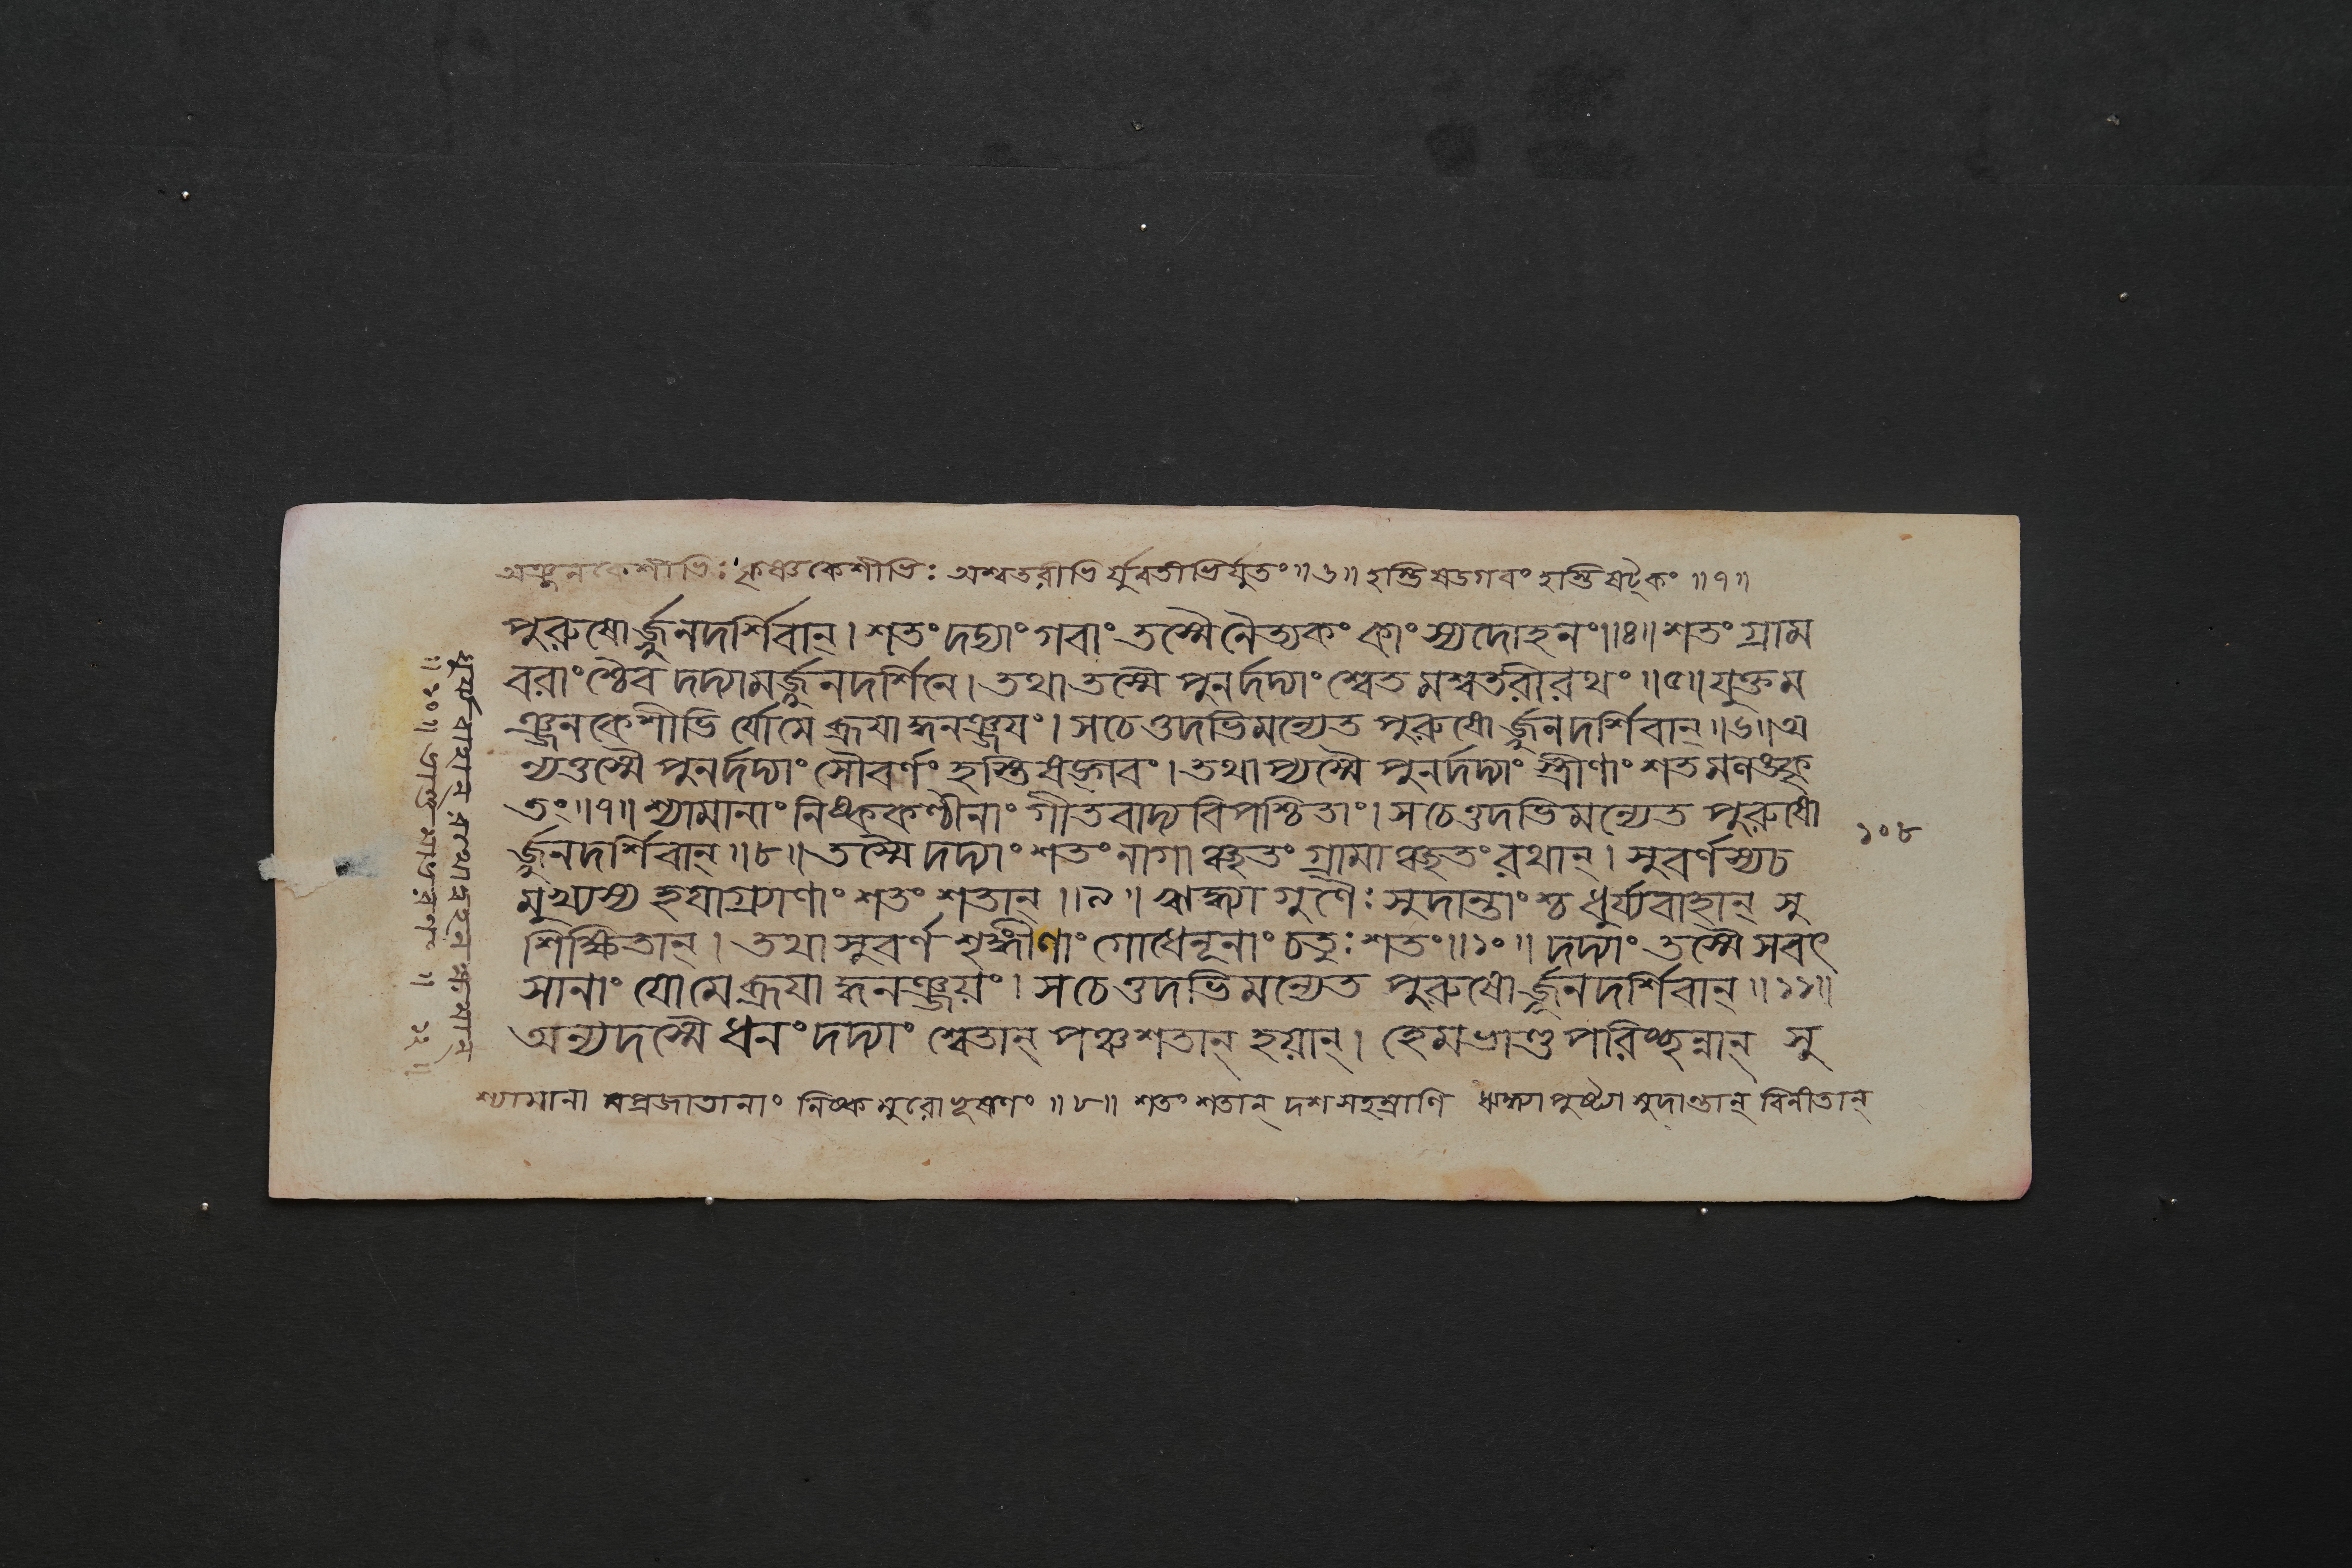 অঞ্জনকেশীভিঃ কৃষ্ণকেশীভিঃ অশ্বতরীভির্যুবতীভির্যুতং॥৬॥ হস্তিষড়গবং হস্তিষট্কৈকং ॥৭॥
পুরুষোর্জ্জুনদর্শিবান্। শতং দদ্যাং গবাং তস্মৈ নৈত্যকং কাংস্যদোহনং॥৪॥ শতং গ্রাম
বরাংশ্চৈব দদ্যামর্জ্জুনদর্শিনে। তথা তস্মৈ পুনর্দদ্যাং শ্বেতমশ্বতরীরথং॥৫॥ যুক্তম
ঞ্জনকেশীভির্যো মে ব্রূয়াদ্ধনঞ্জয়ং। স চেত্তদভিমন্যেত পুরুষোর্জ্জুনদর্শিবান্॥৬॥ অ
ন্যত্তস্মৈ পুনর্দদ্যাং সৌবর্ণং হস্তিষড়্গবং। তথাপ্যস্মৈ পুনর্দদ্যাং স্ত্রীণাং শতমলঙ্কৃ
তং॥৭॥ শ্যামানাং নিষ্ককণ্ঠীনাং গীতবাদ্যবিপশ্চিতাং। স চেত্তদভিমন্যেত পুরুষো
র্জ্জুনদর্শিবান্॥৮॥ তস্মৈ দদ্যাং শতং নাগাঞ্ছতং গ্রামাঞ্ছতং রথান্। সুবর্ণস্য চ
মুখ্যস্য হয়াগ্র্যাণাং শতং শতান্॥৯॥ ঋদ্ধ্যা গুণৈঃ সুদান্তাংশ্চ ধুর্য্যবাহান্ সু
শিক্ষিতান্। তথা সুবর্ণশৃঙ্গীণাং গোধেনূনাং চতুঃশতং॥১০॥ দদ্যাং তস্মৈ সবৎ
সানাং যো মে ব্রূয়াদ্ধনঞ্জয়ং। স চেত্তদভিমন্যেত পুরুষোর্জ্জুনদর্শিবান্॥১১॥
অন্যদস্মৈ ধনং দদ্যাং শ্বেতান্ পঞ্চশতান্ হয়ান্। হেমভাণ্ডপরিচ্ছন্নান্ সু
শ্যামানা মপ্রজাতানাং নিষ্কমুরোভূষণং ॥৮॥ শতং শতান্ দশসহস্রাণি ঋদ্ধ্যা পুষ্ট্যা সুদান্তান্ বিনীতান্
ধুর্য্যবাহান্ রথবহনক্ষমান্
॥১০॥ ভাণ্ডমাভরণং ॥ ১২॥
১০৮